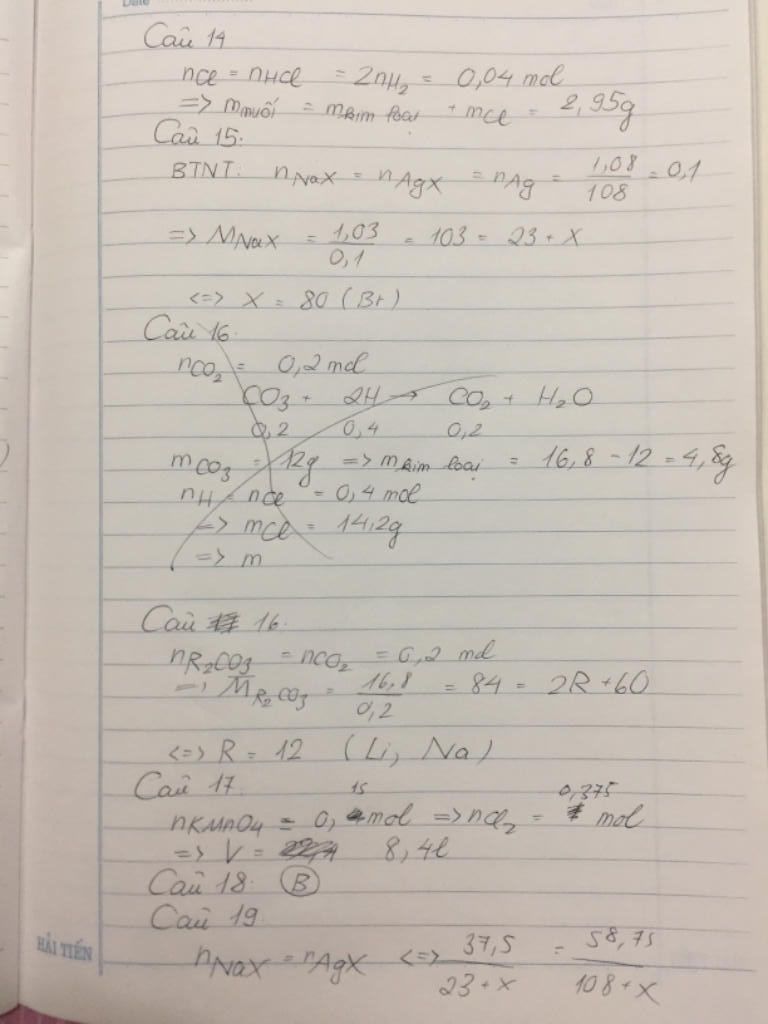 Date
Câu 14
nCl = nHCl = 2nH₂ = 0,04 mol
=> m muối = m kim loại + mCl = 2,95g
Câu 15:
BTNT: nNaX = nAgX = nAg = 1,08/108 = 0,1
=> MNaX = 1,03/0,1 = 103 = 23 + X
<=> X = 80 (Br)
Câu 16.
nCO₂ = 0,2 mol
CO3 + 2H → CO2 + H2O
0,2 0,4 0,2
mCO3 = 12g => m kim loại = 16,8 - 12 = 4,8g
nH = nCl = 0,4 mol
=> mCl = 14,2g
=> m
Câu 16.
nR2CO3 = nCO2 = 0,2 mol
=> M̅R2CO3 = 16,8/0,2 = 84 = 2R + 60
<=> R = 12 (Li, Na)
Câu 17.
nKMnO4 = 0,15 mol => nCl2 = 0,375 mol
=> V = 8,4l
Câu 18: B
Câu 19
HẢI TIẾN
nNaX = nAgX <=> 37,5/23+X = 58,75/108+X